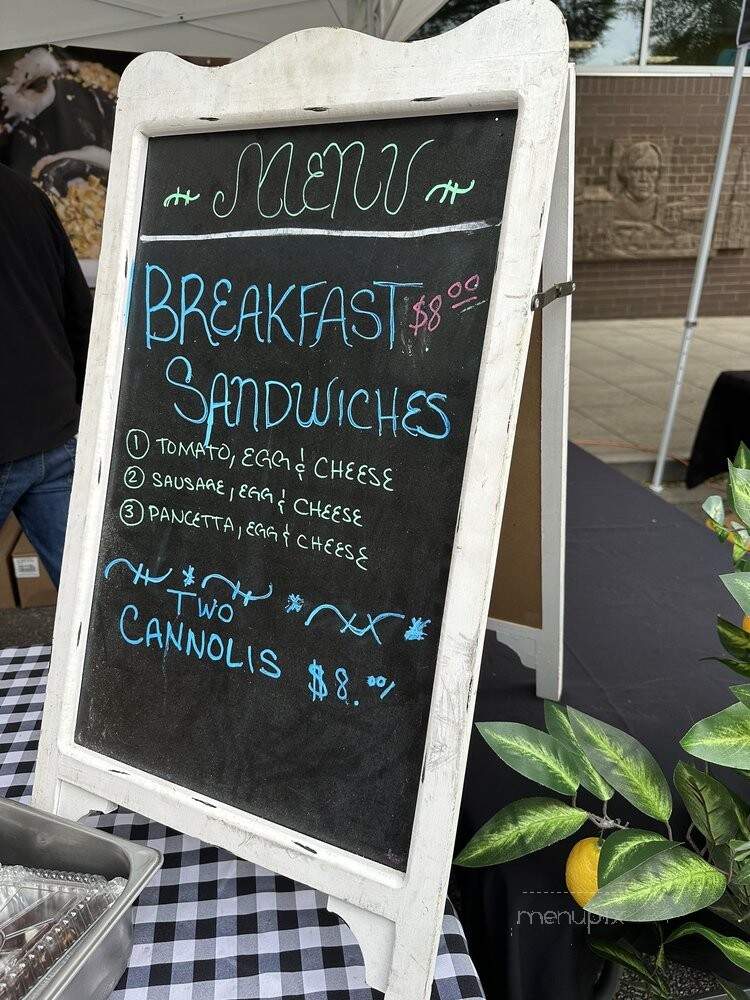 MENU
BREAKFAST $8.00
SANDWICHES
1 TOMATO, EGG & CHEESE
2 SAUSAGE, EGG & CHEESE
3 PANCETTA, EGG & CHEESE
TWO
CANNOLIS $8.00
menupix